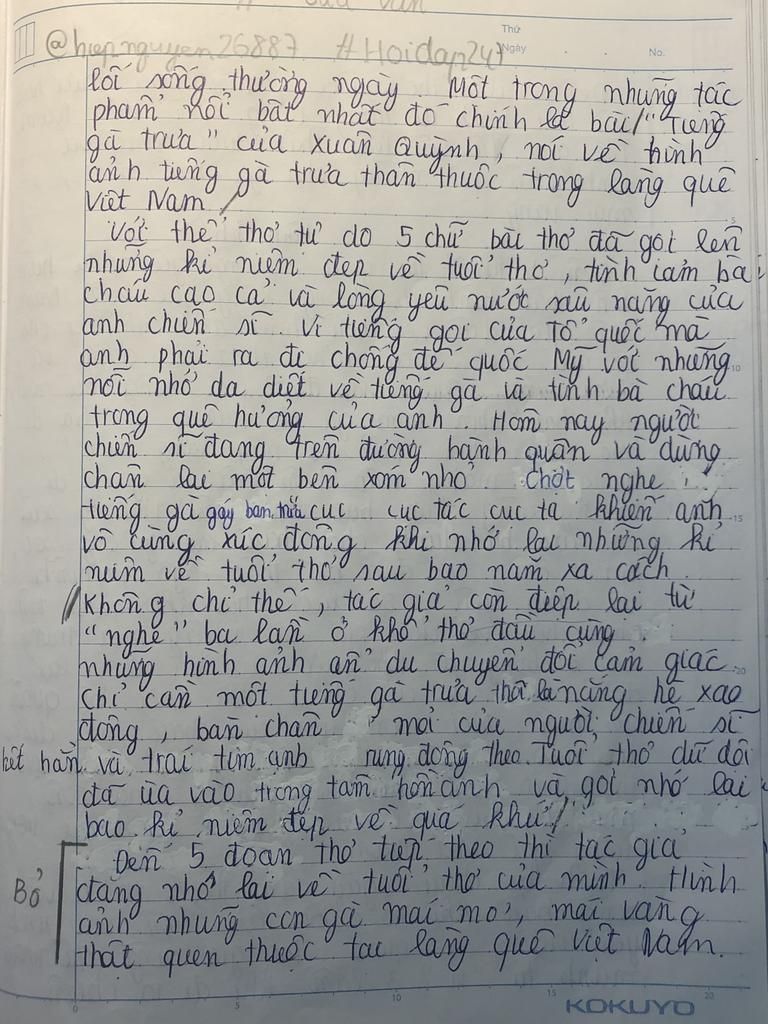 Thứ
@hiepnguyen26887 #Hoidap247
Ngày
No.
lối sống thường ngày Một trong những tác
phẩm nổi bật nhất đó chính là bài "Tiếng
gà trưa" của Xuân Quỳnh, nói về hình
ảnh tiếng gà trưa thân thuộc trong làng quê
Việt Nam
Với thể thơ tự do 5 chữ bài thơ đã gợi lên
những kỉ niệm đẹp về tuổi thơ, tình cảm bà
cháu cao cả và lòng yêu nước sâu nặng của
anh chiến sĩ. Vì tiếng gọi của Tổ quốc mà
anh phải ra đi chống đế quốc Mỹ với những
nỗi nhớ da diết về tiếng gà và tình bà cháu
trong quê hương của anh. Hôm nay người
chiến sĩ đang trên đường hành quân và dừng
chân lại một bên xóm nhỏ Chợt nghe
tiếng gà gáy ban trưa cục cục tác cục ta khiến anh
vô cùng xúc động khi nhớ lại những kỉ
niệm về tuổi thơ sau bao năm xa cách.
Không chỉ thế, tác giả còn điệp lại từ
"nghe" ba lần ở khổ thơ đầu cùng
những hình ảnh ẩn dụ chuyển đổi cảm giác.
Chỉ cần một tiếng gà trưa thôi là nắng hè xao
động, bàn chân mỏi của người chiến sĩ
hết hẳn và trái tim anh rung động theo. Tuổi thơ dữ dội
đã ùa vào trong tâm hồn anh và gợi nhớ lại
bao kỉ niệm đẹp về quá khứ.
Đến 5 đoạn thơ tiếp theo thì tác giả
Bỏ
đang nhớ lại về tuổi thơ của mình. Hình
ảnh những con gà mái mơ, mái vàng
thật quen thuộc tại làng quê Việt Nam.
5
10
15
20
0
5
10
15
20
KOKUYO